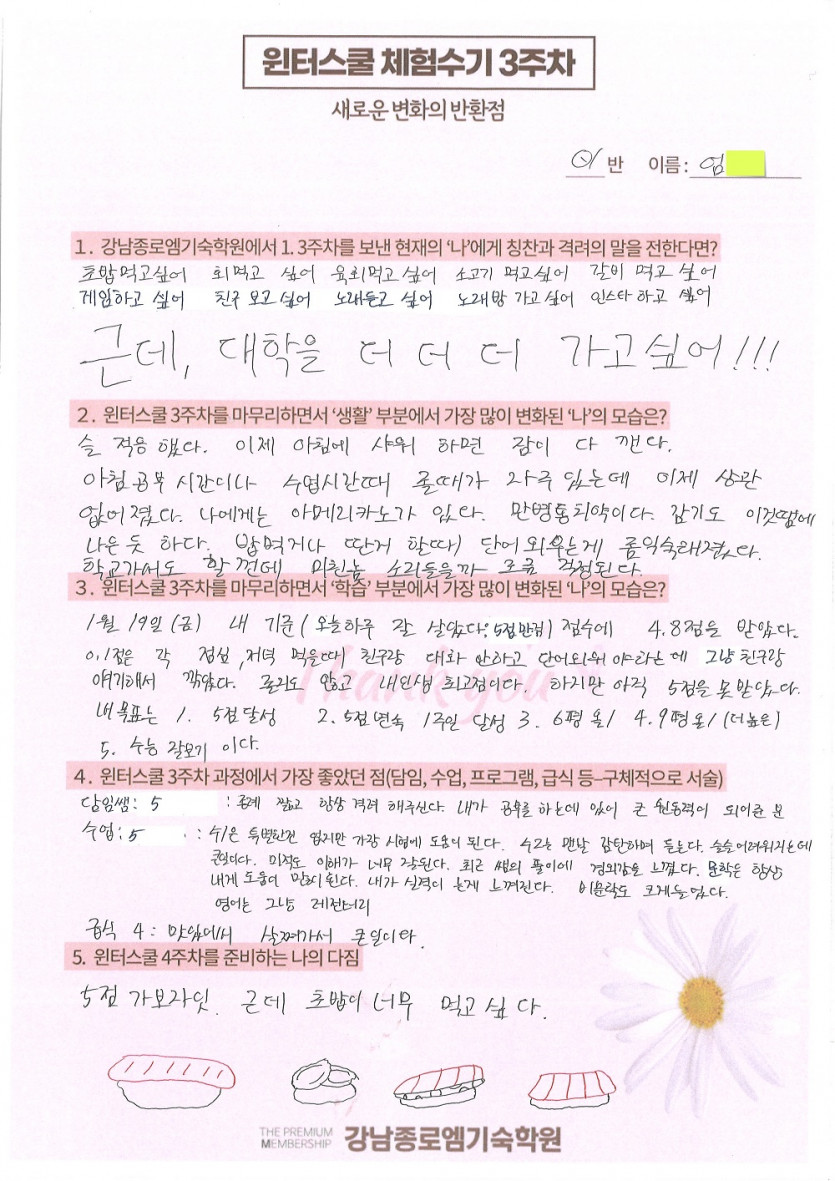 윈터스쿨 체험수기 3주차
새로운 변화의 반환점
반 이름: 엄
1. 강남종로엠기숙학원에서 1. 3주차를 보낸 현재의 ‘나’에게 칭찬과 격려의 말을 전한다면?
초밥먹고싶어 회먹고 싶어 육회먹고싶어 소고기 먹고싶어 갈비 먹고 싶어
게임하고 싶어 친구 보고싶어 노래듣고 싶어 노래방 가고싶어 인스타 하고 싶어
근데, 대학을 더 더 더 가고싶어!!!
2. 윈터스쿨 3주차를 마무리하면서 ‘생활’ 부분에서 가장 많이 변화된 ‘나’의 모습은?
슬 적응 했다. 이제 아침에 샤워 하면 잠이 다 깬다.
아침공부 시간이나 수업시간때 졸때가 자주 있는데 이제 상관
없어졌다. 나에게는 아메리카노가 있다. 만병통치약이다. 감기도 이것땜에
나은듯 하다. 밥먹거나 딴거 할때 단어외우는게 좀익숙해졌다.
학교가서도 할껀데 미친놈 소리들을까 조금 걱정된다.
3. 윈터스쿨 3주차를 마무리하면서 ‘학습’ 부분에서 가장 많이 변화된 ‘나’의 모습은?
1월 19일(금) 내 기준(오늘하루 잘 살았다: 5점만점) 점수에 4.8점을 받았다.
0.1점은 각 점심,저녁 먹을때 친구랑 대화 안하고 단어외워야하는데 그냥 친구랑
얘기해서 깎았다. 졸지도 않고 내인생 최고점이다. 하지만 아직 5점을 못받았다.
Thank you
내 목표는 1. 5점달성 2. 5점연속 1주일 달성 3. 6평 올1 4. 9평올1 (더높은)
5. 수능 잘보기 이다.
4. 윈터스쿨 3주차 과정에서 가장 좋았던 점(담임, 수업, 프로그램, 급식 등–구체적으로 서술)
담임쌤: 5 : 종례 짧고 항상 격려 해주신다. 내가 공부를 하는데 있어 큰 원동력이 되어준 분
수업: 5 : 수1은 특별한건 없지만 가장 시험에 도움이 된다. 수2는 맨날 감탄하며 듣는다. 슬슬어려워지는데
큰일이다. 미적도 이해가 너무 잘된다. 최근 쌤의 풀이에 경외감을 느꼈다. 문학은 항상
내게 도움이 많이 된다. 내가 실력이 는게 느껴진다. 비문학도 크게늘었다.
영어는 그냥 레전더리
급식 4: 맛있어서 살쪄가서 큰일이다.
5. 윈터스쿨 4주차를 준비하는 나의 다짐
5점 가보자잇. 근데 초밥이 너무 먹고 싶다.
THE PREMIUM
MEMBERSHIP 강남종로엠기숙학원